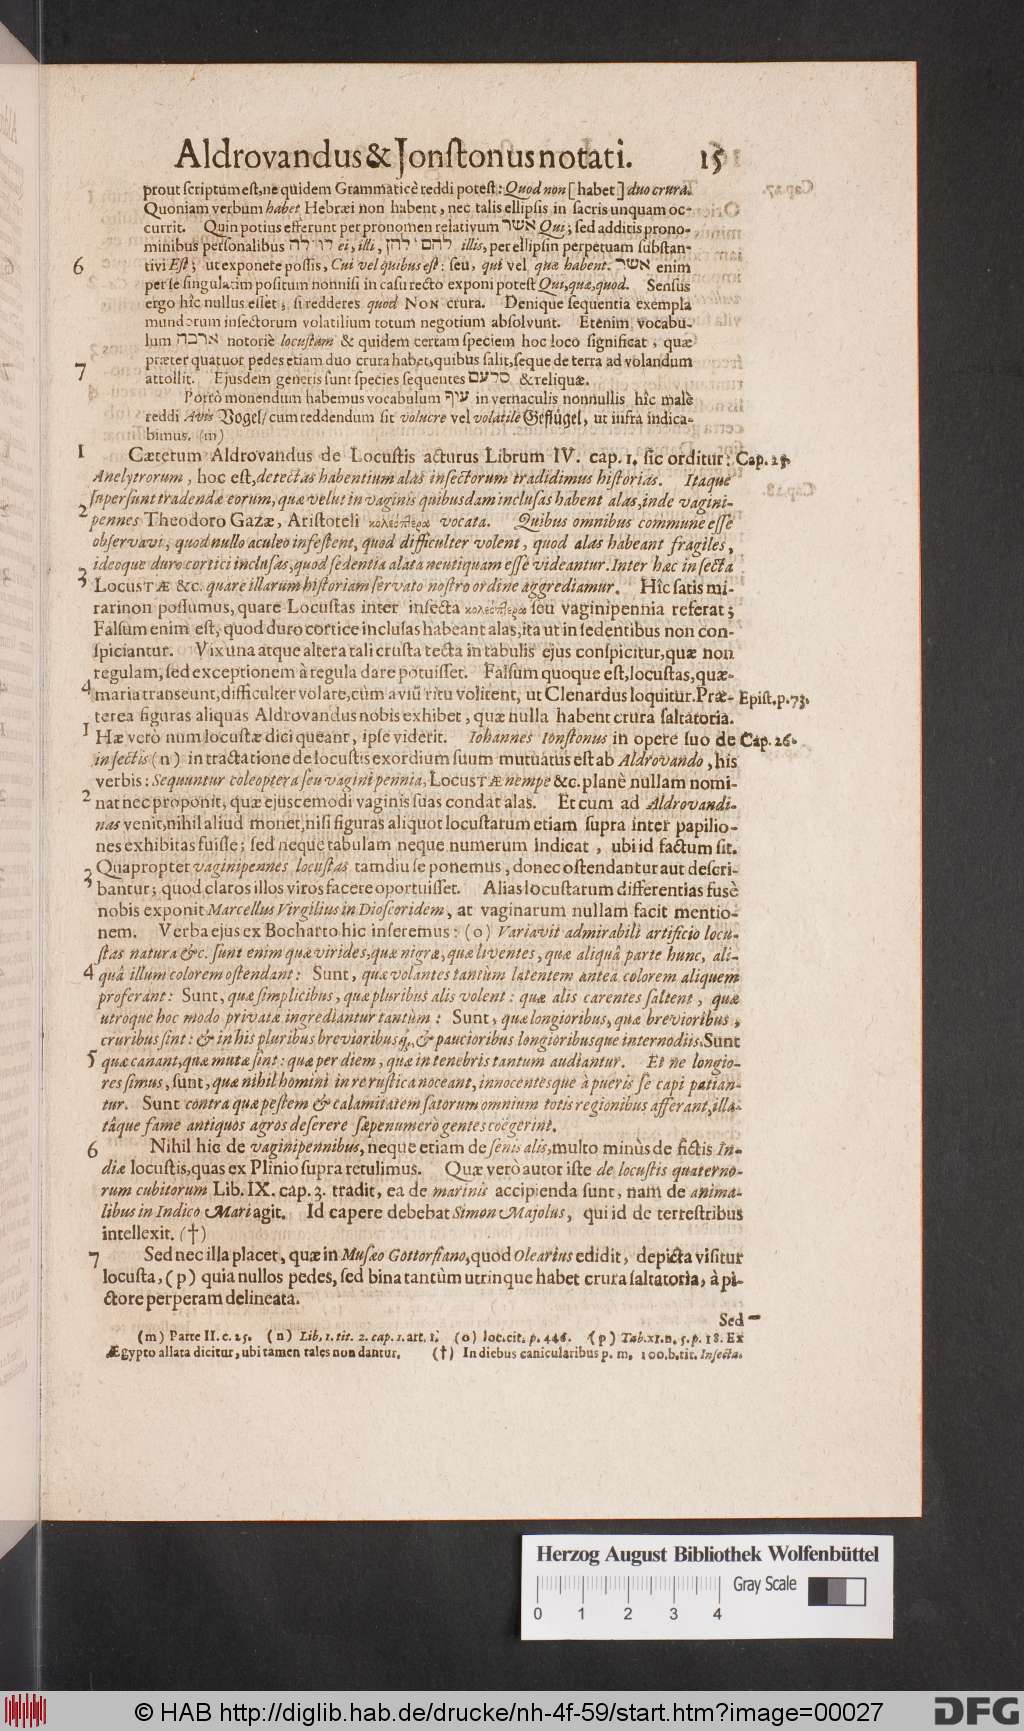 Aldrovandus & Jonſtonus notati. 15
prout ſcriptum eſt, ne quidem Grammaticè reddi poteſt: Quod non [habet] duo crura.
Quoniam verbum habet Hebræi non habent, nec talis ellipſis in ſacris unquam oc-
currit. Quin potius efferunt per pronomen relativum אשר Qui; ſed additis prono-
minibus perſonalibus לו י לה ei, illi, להם י להן illis, per ellipſin perpetuam ſubſtan-
6 tivi Eſt; ut exponere poſſis, Cui vel quibus eſt: ſeu, qui vel quæ habent. אשר enim
per ſe ſingulatim poſitum nonniſi in caſu recto exponi poteſt Qui, quæ, quod. Senſus
ergo hîc nullus eſſet, ſi redderes quod NON crura. Denique ſequentia exempla
mundorum inſectorum volatilium totum negotium abſolvunt. Etenim vocabu-
lum ארבה notoriè locuſtam & quidem certam ſpeciem hoc loco ſignificat, quæ
7 præter quatuor pedes etiam duo crura habet, quibus ſalit, ſeque de terra ad volandum
attollit. Ejusdem generis ſunt ſpecies ſequentes סלעם & reliquæ.
Porrò monendum habemus vocabulum עוף in vernaculis nonnullis hîc malè
reddi Avis Vogel/ cum reddendum ſit volucre vel volatile Geflügel, ut infra indica-
bimus. (m)
1 Cæterum Aldrovandus de Locuſtis acturus Librum IV. cap. 1. ſic orditur: Cap. 25.
Anelytrorum, hoc eſt, detectas habentium alas inſectorum tradidimus hiſtorias. Itaque
ſuperſunt tradendæ eorum, quæ velut in vaginis quibusdam incluſas habent alas, inde vagini-
2 pennes Theodoro Gazæ, Ariſtoteli κολεόπτερα vocata. Quibus omnibus commune eſſe
obſervavi, quod nullo aculeo infeſtent, quod difficulter volent, quod alas habeant fragiles,
ideoque duro cortici incluſas, quod ſedentia alata neutiquam eſſe videantur. Inter hæc inſecta
3 LOCUSTÆ &c. quare illarum hiſtoriam ſervato noſtro ordine aggrediamur. Hîc ſatis mi-
rari non poſſumus, quare Locuſtas inter inſecta κολεόπτερα ſeu vaginipennia referat;
Falſum enim eſt, quod duro cortice incluſas habeant alas, ita ut in ſedentibus non con-
ſpiciantur. Vix una atque altera tali cruſta tecta in tabulis ejus conſpicitur, quæ non
regulam, ſed exceptionem à regula dare potuiſſet. Falſum quoque eſt, locuſtas, quæ
4 maria tranſeunt, difficulter volare, cùm aviũ ritu volitent, ut Clenardus loquitur. Præ- Epiſt. p. 73.
terea figuras aliquas Aldrovandus nobis exhibet, quæ nulla habent crura ſaltatoria.
1 Hæ verò num locuſtæ dici queant, ipſe viderit. Iohannes Ionſtonus in opere ſuo de Cap. 26.
inſectis (n) in tractatione de locuſtis exordium ſuum mutuatus eſt ab Aldrovando, his
verbis: Sequuntur coleoptera ſeu vaginipennia, LOCUSTÆ nempe &c. planè nullam nomi-
2 nat nec proponit, quæ ejuscemodi vaginis ſuas condat alas. Et cum ad Aldrovandi-
nas venit, nihil aliud monet, niſi figuras aliquot locuſtarum etiam ſupra inter papilio-
nes exhibitas fuiſſe; ſed neque tabulam neque numerum indicat, ubi id factum ſit.
3 Quapropter vaginipennes locuſtas tamdiu ſe ponemus, donec oſtendantur aut deſcri-
bantur; quod claros illos viros facere oportuiſſet. Alias locuſtarum differentias fusè
nobis exponit Marcellus Virgilius in Dioſcoridem, at vaginarum nullam facit mentio-
nem. Verba ejus ex Bocharto hic inſeremus: (o) Variavit admirabili artificio locu-
ſtas natura &c. ſunt enim quæ virides, quæ nigræ, quæ liventes, quæ aliquâ parte hunc, ali-
4 quâ illum colorem oſtendant: Sunt, quæ volantes tantùm latentem anteà colorem aliquem
proferant: Sunt, quæ ſimplicibus, quæ pluribus alis volent: quæ alis carentes ſaltent, quæ
utroque hoc modo privatæ ingrediantur tantùm: Sunt, quæ longioribus, quæ brevioribus,
cruribus ſint: & in his pluribus brevioribusq́;, & paucioribus longioribusque internodiis. Sunt
5 quæ canant, quæ mutæ ſint: quæ per diem, quæ in tenebris tantum audiantur. Et ne longio-
res ſimus, ſunt, quæ nihil homini in re ruſtica noceant, innocentesque à pueris ſe capi patian-
tur. Sunt contra quæ peſtem & calamitatem ſatorum omnium totis regionibus afferant, illa-
tâque fame antiquos agros deſerere ſæpenumerò gentes coëgerint.
6 Nihil hic de vaginipennibus, neque etiam de ſenis alis, multo minùs de fictis In-
diæ locuſtis, quas ex Plinio ſupra retulimus. Quæ verò autor iſte de locuſtis quaterno-
rum cubitorum Lib. IX. cap. 3. tradit, ea de marinis accipienda ſunt, nam de anima-
libus in Indico Mari agit. Id capere debebat Simon Majolus, qui id de terreſtribus
intellexit. (†)
7 Sed nec illa placet, quæ in Muſæo Gottorfiano, quod Olearius edidit, depicta viſitur
locuſta, (p) quia nullos pedes, ſed bina tantùm utrinque habet crura ſaltatoria, à pi-
ctore perperam delineata.
Sed
(m) Parte II. c. 25. (n) Lib. 1. tit. 2. cap. 1. art. 1. (o) loc. cit. p. 446. (p) Tab. XI. n. 5. p. 18. Ex
Ægypto allata dicitur, ubi tamen tales non dantur. (†) In diebus canicularibus p. m. 100. b. tit. Inſecta.
Herzog August Bibliothek Wolfenbüttel
Gray Scale
0 1 2 3 4
© HAB http://diglib.hab.de/drucke/nh-4f-59/start.htm?image=00027
DFG